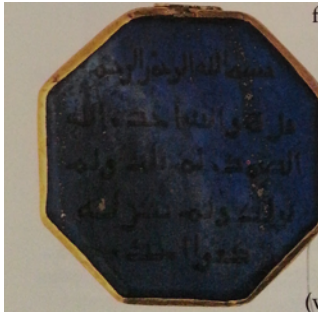 بسم الله الرحمن الرحيم
قل هو الله أحد الله
الصمد لم يلد ولم
يولد ولم يكن له
كفوا أحد
f
(v